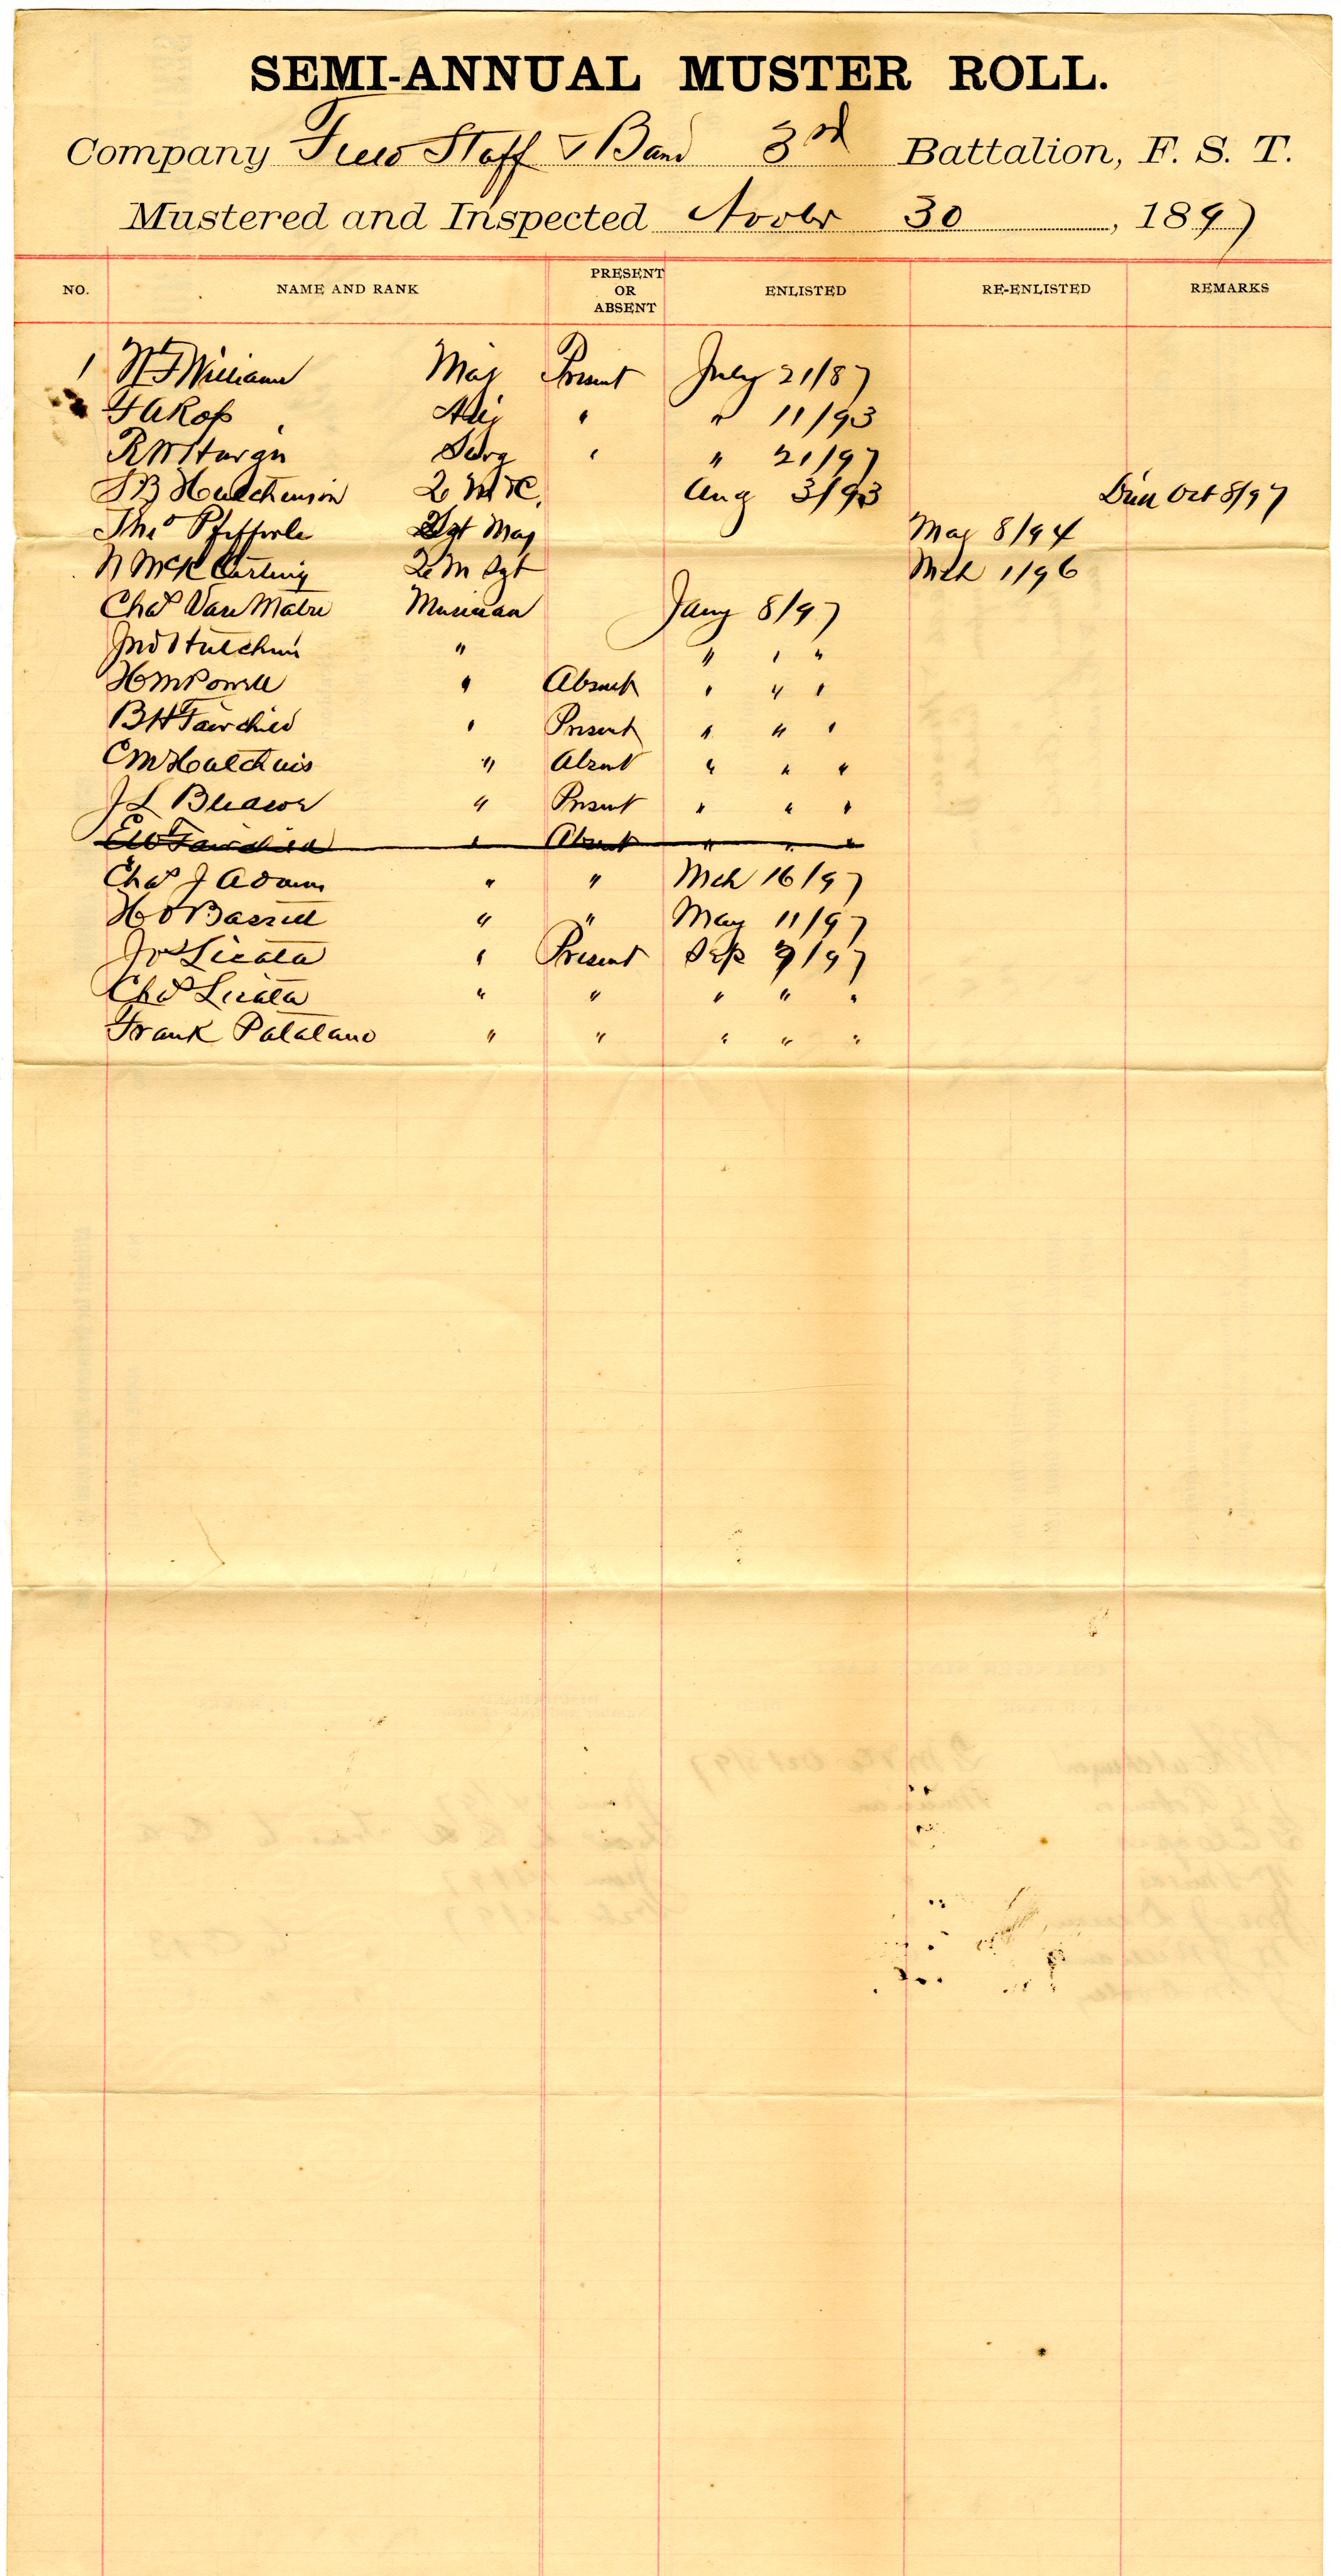 SEMI-ANNUAL MUSTER ROLL.
Company Staff & Band 3rd Battalion, F. S. T.
Mustered and Inspected Novbr 30, 1897
NO. NAME AND RANK PRESENT OR ABSENT ENLISTED RE-ENLISTED REMARKS
1 Maj Present July 21/87
Adj " " 11/93
Surg " " 21/97
J B Hutchinson Q M Aug 3/93 Oct 8/97
Thos Sgt Maj Mar 8/94
N McK Carling Q M Sgt Mch 1/96
Chas Van Matre Musician Jany 8/97
Jno Hutchins " " " "
H M Powell " Absent " " "
B H Fairchild " Present " " "
C M Hutchins " Absent " " "
J L " Present " " "
Fairchild " Absent " " "
Chas J Adams " " Mch 16/97
H O " " May 11/97
Licata " Present Sep 9/97
Chas Licata " " " " "
Frank Patalano " " " " "